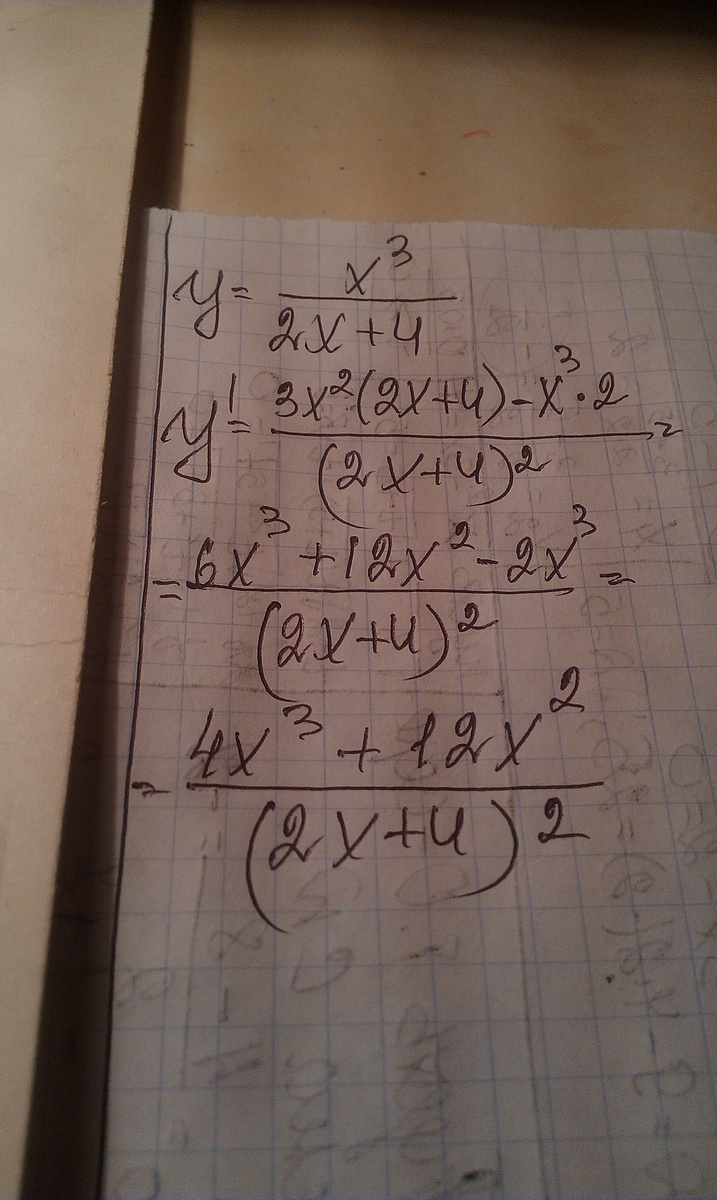 y = x³ / (2x+4)
y' = (3x²(2x+4) - x³·2) / (2x+4)² =
= (6x³ + 12x² - 2x³) / (2x+4)² =
= (4x³ + 12x²) / (2x+4)²